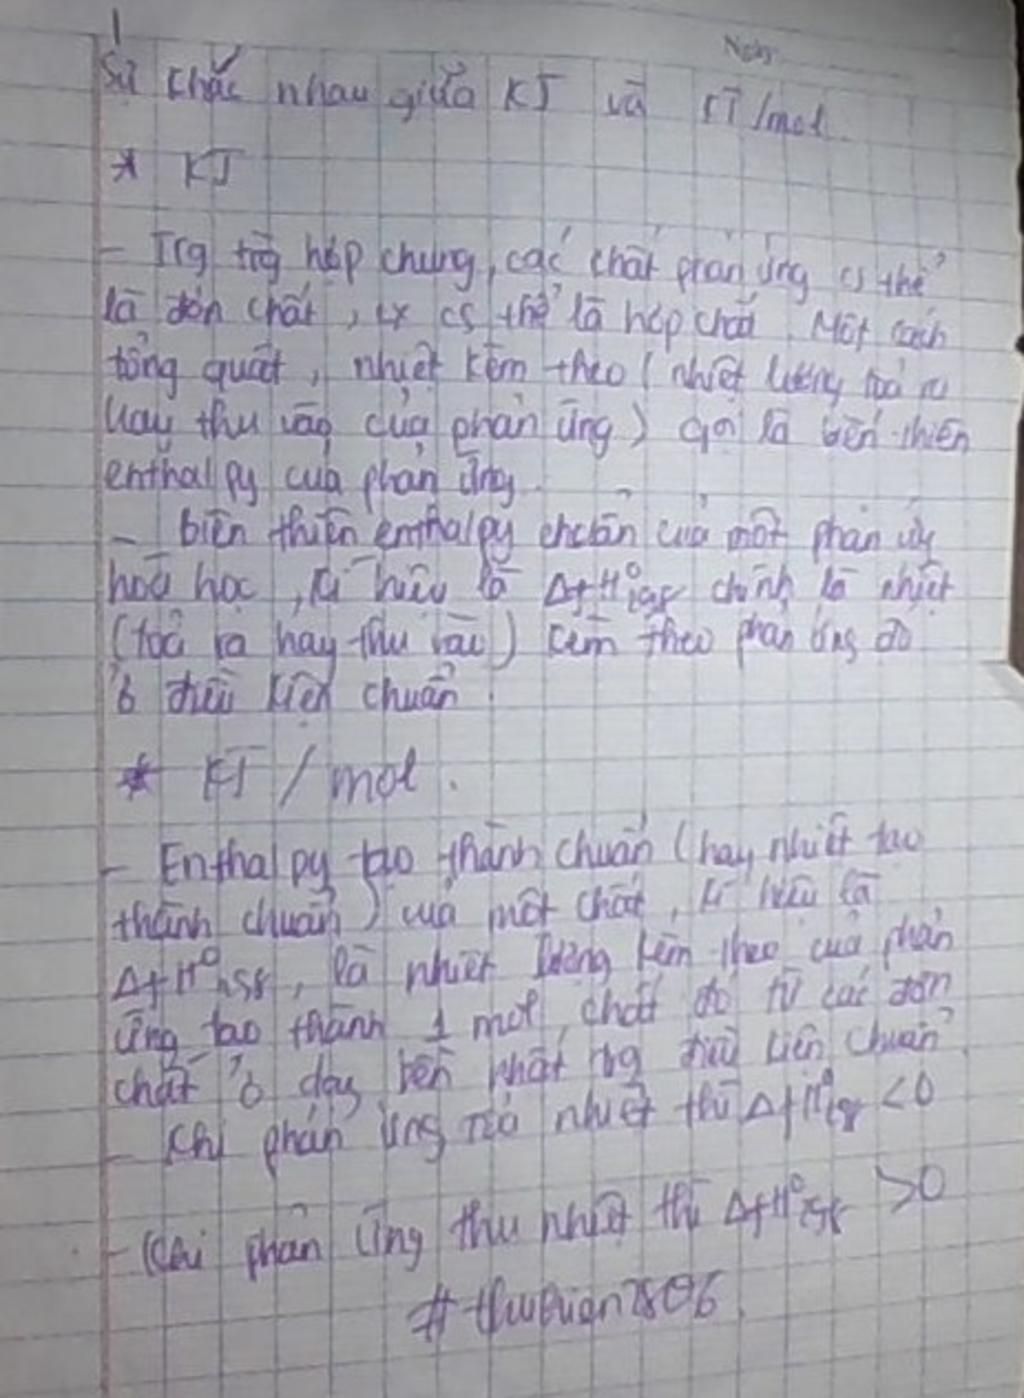 Ngày
Sự khắc nhau giữa KJ và KJ/mol.
* KJ
- Trg trg hợp chung, các chất phản ứng cs thể
là đơn chất, cx cs thể là hợp chất. Một cách
tổng quát, nhiệt kèm theo (nhiệt lượng toả ra
hay thu vào của phản ứng) gọi là biến thiên
enthalpy của phản ứng.
- biến thiên enthalpy chuẩn của một phản ứng
hoá học, kí hiệu là ΔfH°298 chính là nhiệt
(toả ra hay thu vào) kèm theo phản ứng đó
ở điều kiện chuẩn.
* KJ/mol.
- Enthalpy tạo thành chuẩn (hay nhiệt tạo
thành chuẩn) của một chất, kí hiệu là
ΔfH°298, là nhiệt lượng kèm theo của phản
ứng tạo thành 1 mol, chất đó từ các đơn
chất ở dạg bền nhất trg điều kiện chuẩn.
- Khi phản ứng toả nhiệt thì ΔfH°298 <0
- Khi phản ứng thu nhiệt thì ΔfH°298 >0